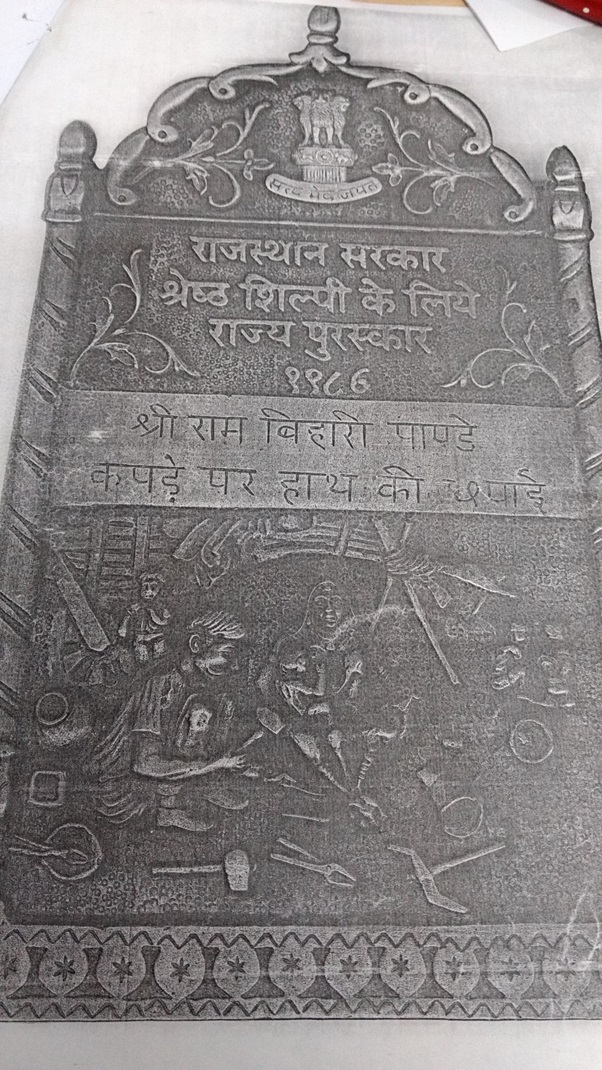 सत्यमेव जयते
राजस्थान सरकार
श्रेष्ठ शिल्पी के लिये
राज्य पुरस्कार
१९८६
श्री राम बिहारी पाण्डे
कपड़े पर हाथ की छपाई